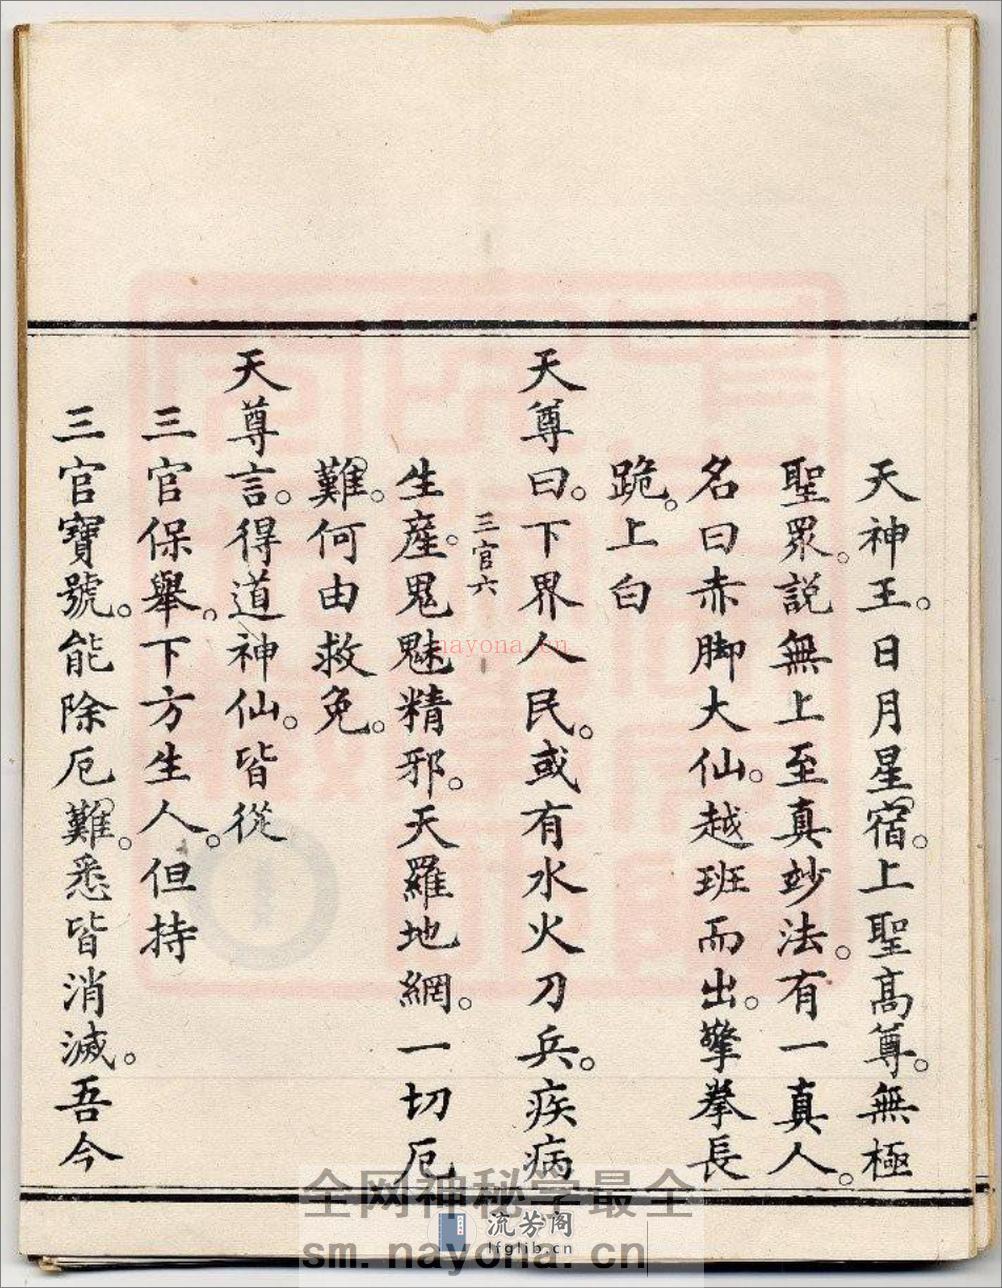 天神王。日月星宿。上聖高尊。無極
聖眾。説無上至真妙法。有一真人。
名曰赤脚大仙。越班而出。擎拳長
跪。上白
天尊曰。下界人民。或有水火刀兵。疾病
三官六
生產。鬼魅精邪。天羅地網。一切厄
難。何由救免。
天尊言。得道神仙。皆從
三官保舉。下方生人。但持
三官寶號。能除厄難。悉皆消滅。吾今
nayona.cn
全网神秘学最全
流芳阁
lfglib.cn
sm.nayona.cn